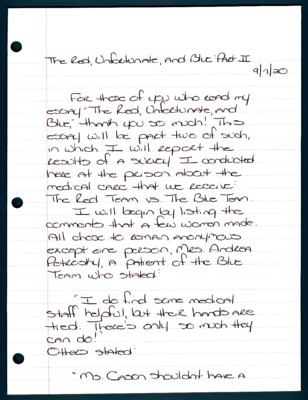 The Red, Unfortunate, and Blue: Part II
9/7/20
For those of you who read my
essay "The Red, Unfortunate, and
Blue," thank you so much! This
essay will be part two of such,
in which I will report the
results of a survey I conducted
here at the person about the
medical care that we receive:
The Red Team vs. The Blue Team.
I will begin by listing the
comments that a few women made.
All chose to remain anonymous
except one person, Mrs. Andrea
a patient of the Blue
Team who stated:
"I do find some medical
staff helpful, but their hands are
tied. There's only so much they
can do!"
Others stated:
"Ms. Cason shouldn't have a